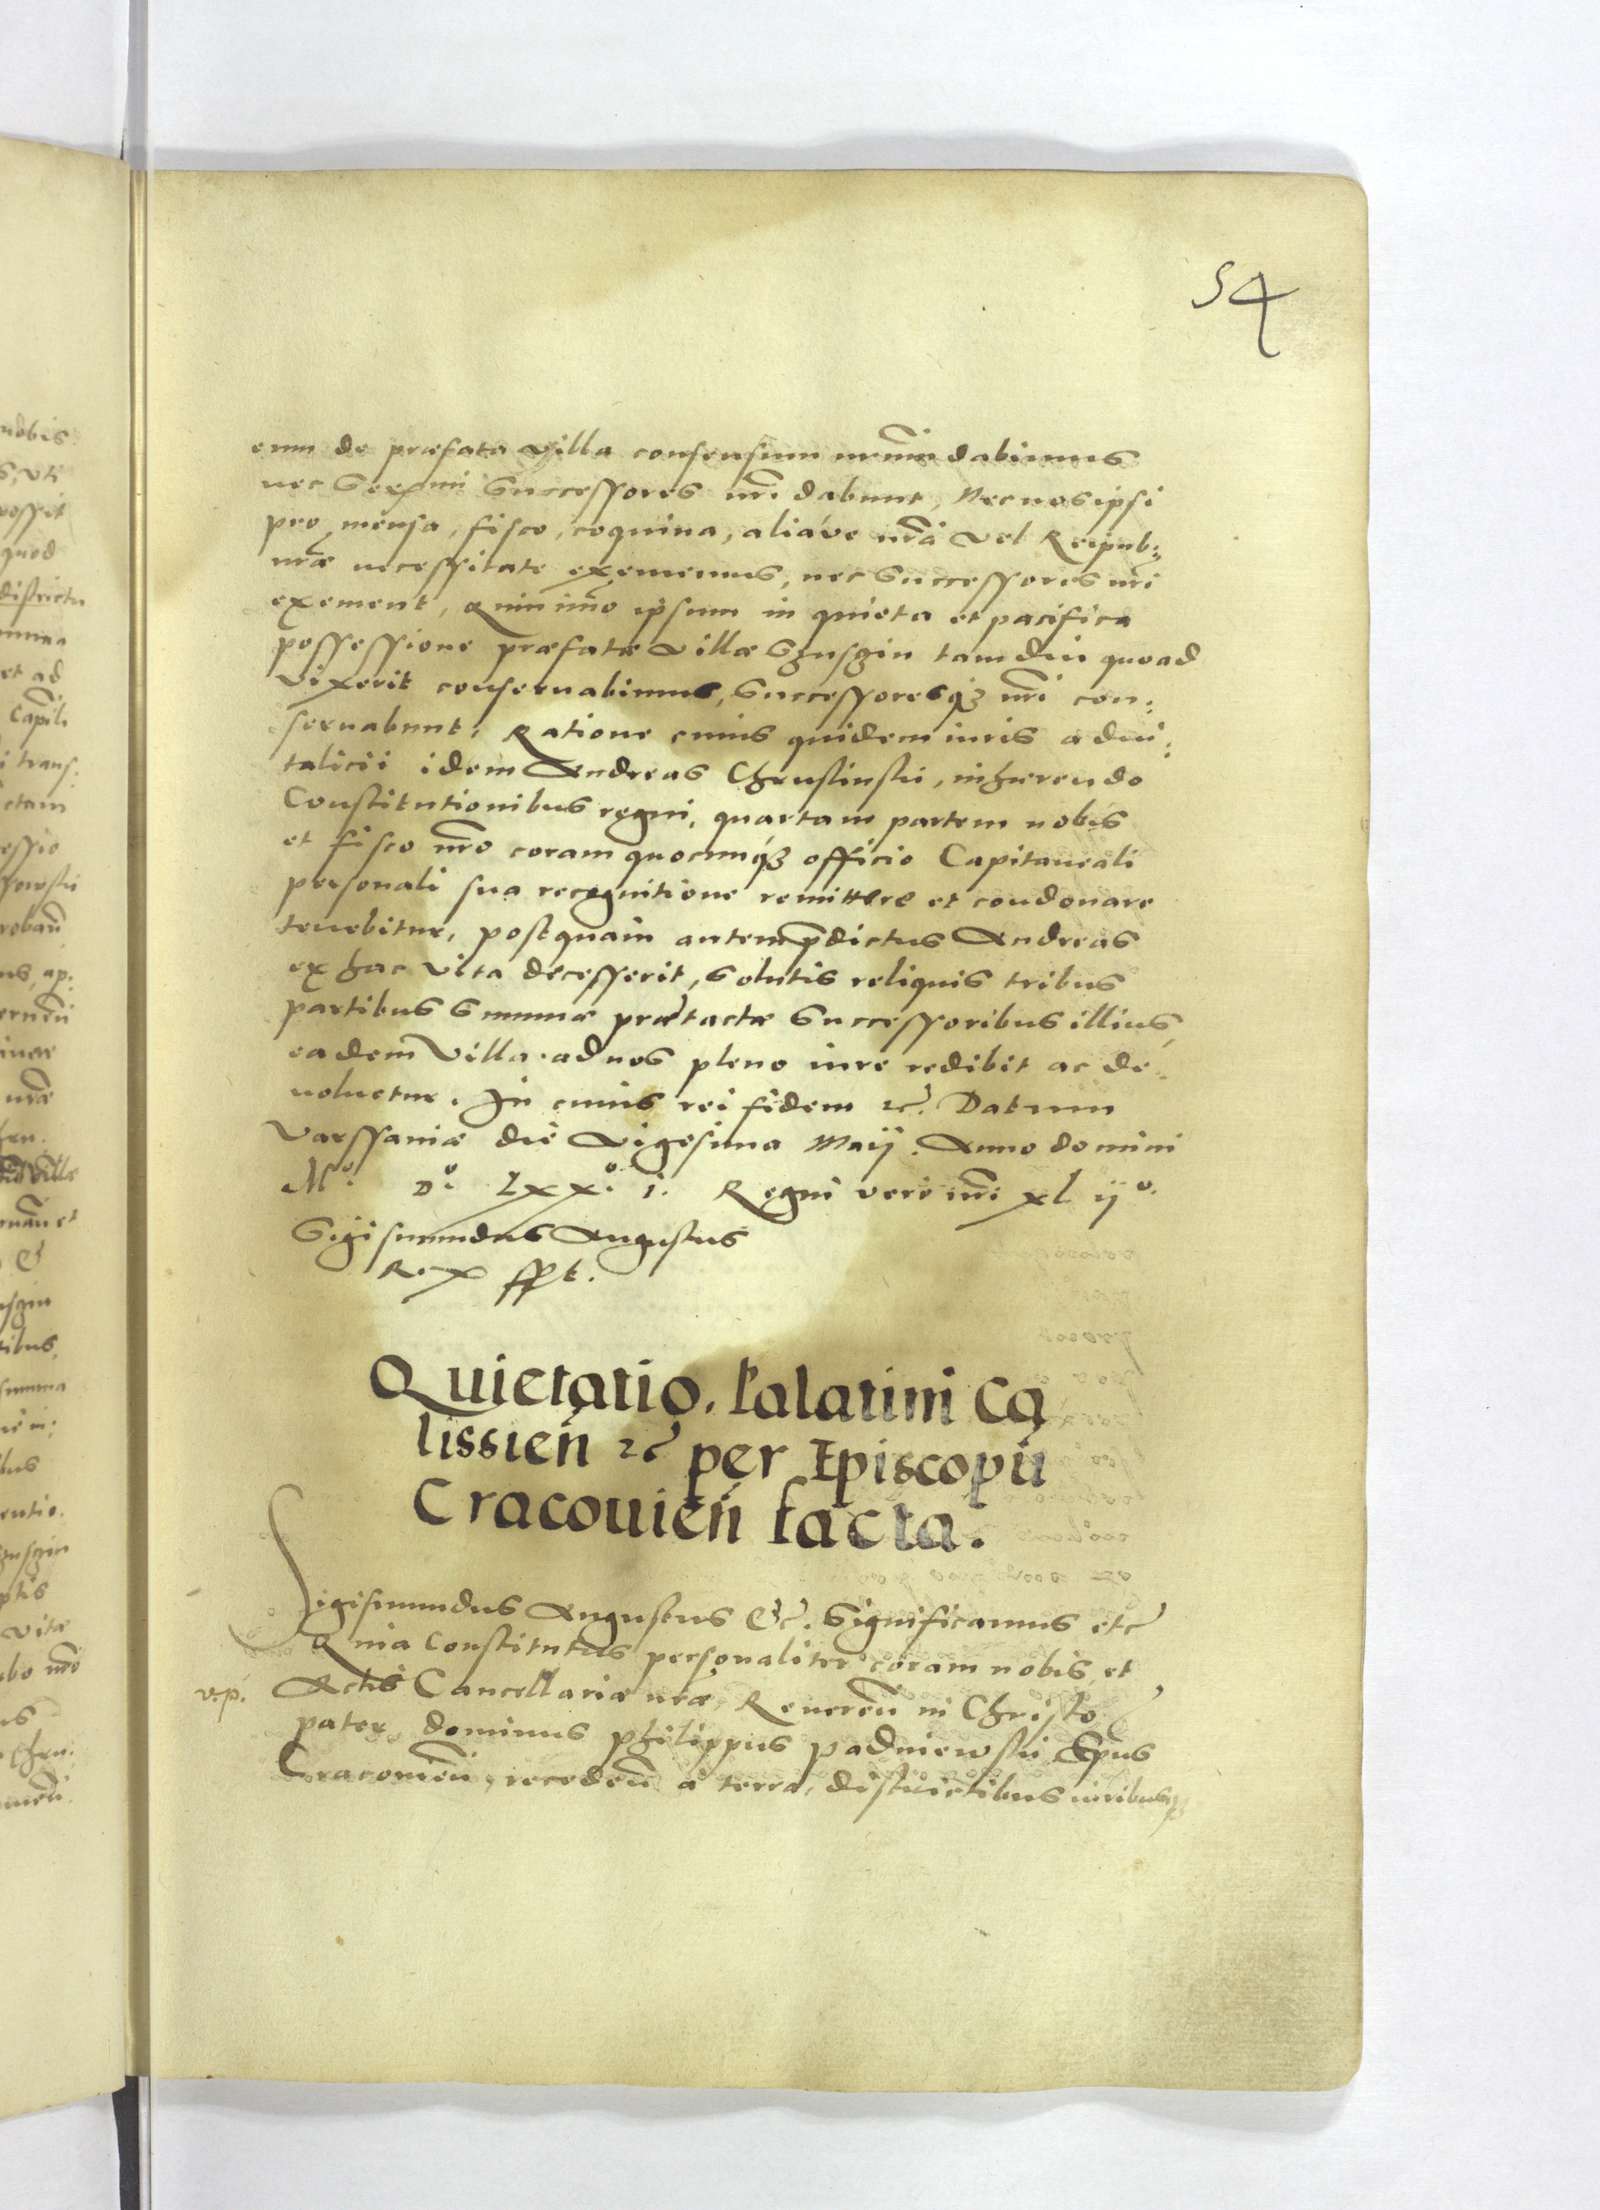 54
eum de præfata villa consensum nemini dabimus
nec Sermi Successores nri dabunt, Nec nos ipsi
pro mensa, fisco, coquina, aliáve nrâ vel Reipub:
nræ necessitate exememus, nec Successores nri
exement, Quinimo ipsum in quieta et pacifica
possessione præfatæ villæ Szusgin tamdiu quoad
vixerit conseruabimus, Successoresq3 nri con:
seruabunt: Ratione cuius quidem iuris aduí:
talicii idem Andreas Chrustinski, inhærendo
Constitutionibus regni, quartam partem nobis
et fisco nro coram quocunq3 officio Capitaneali
personali sua recognitione remittere et condonare
tenebitur, postquam autem pdictus Andreas
ex hac vita decesserit, Solutis reliquis tribus
partibus Summæ prætactæ Successoribus illius,
eadem Villa ad nos pleno iure redibit ac de
uoluetur. In cuius rei fidem etc. Datum
Varssauiæ die Vigesima Maij. Anno domini
Mo. Do. Lxxo. i. Regni vero nri xl ijo.
Sigismundus Augustus
Rex sspt.
Quietatio. Palatini Ca
lissień etc per Episcopū
Cracouień facta.
Sigismundus Augustus Etc. Significamus etc
Quia Constitutus personaliter coram nobis, et
v.p. Actis Cancellariæ nræ, Reueren̄ in Christo
pater dominus Philippus Padniewski Eṗus
Cracouien̄, recedēn à terra, districtibus iuribusq3